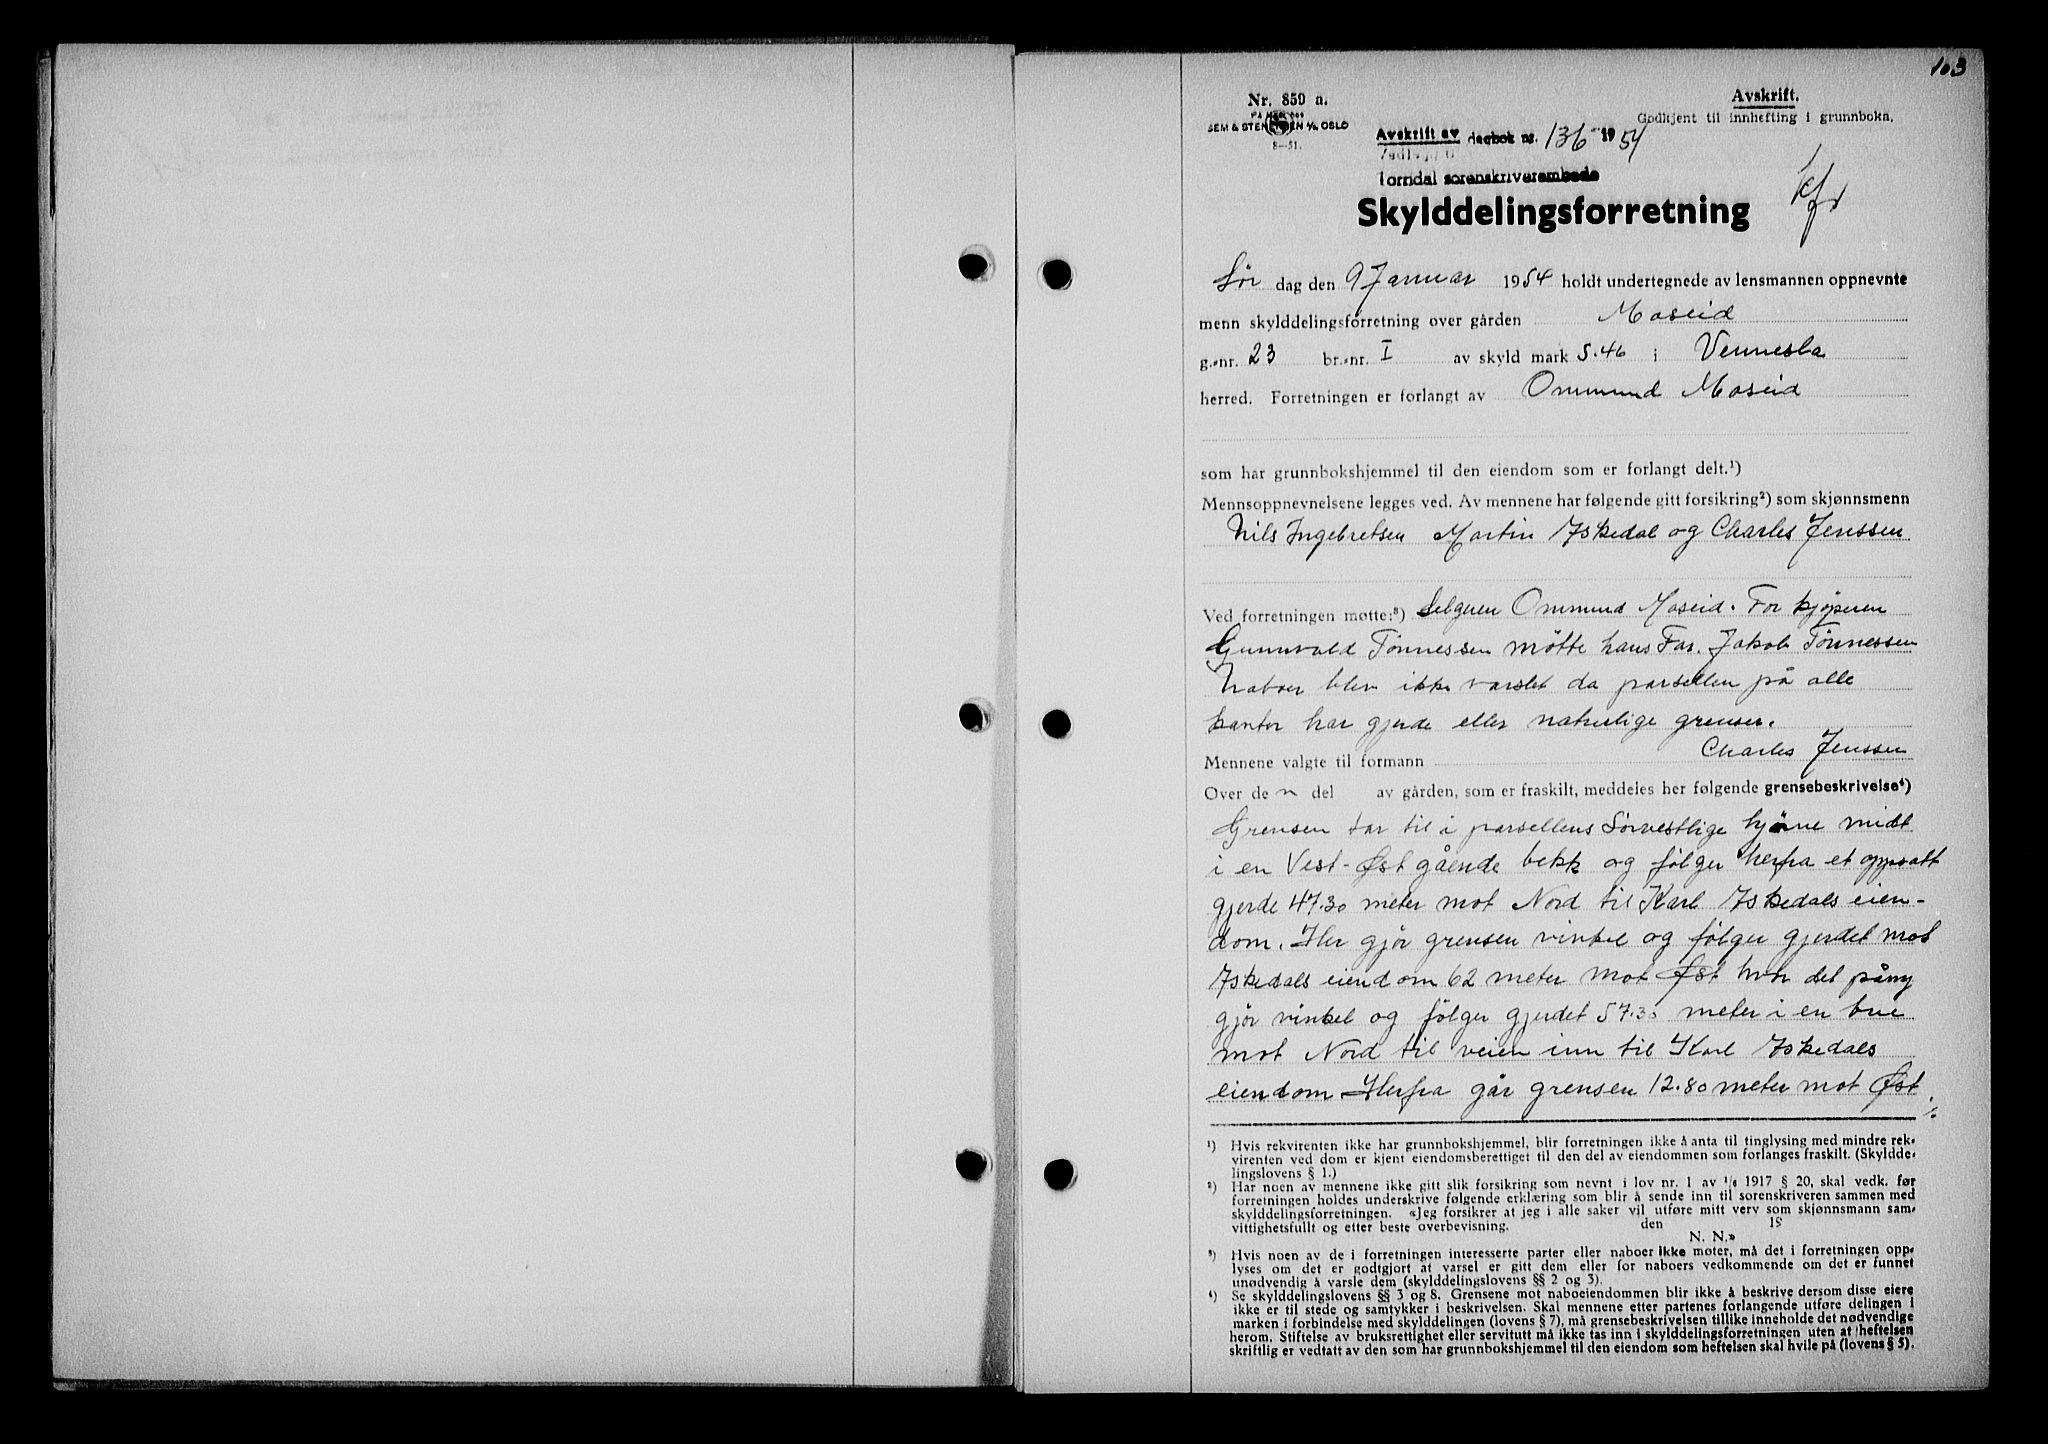 103
Nr. 859 a.
SEM & STENERSEN A/S OSLO
8-51.
Avskrift.
Godkjent til innhefting i grunnboka.
Avskrift av dagbok nr. 136 1954
Torridal sorenskriverembede
Skylddelingsforretning
Sør dag den 9 Januar 1954 holdt undertegnede av lensmannen oppnevnte
menn skylddelingsforretning over gården Moseid
g.-nr. 23 br.-nr. I av skyld mark 5.46 i Vennesla
herred. Forretningen er forlangt av Ommund Moseid
som har grunnbokshjemmel til den eiendom som er forlangt delt.¹)
Mennsoppnevnelsene legges ved. Av mennene har følgende gitt forsikring²) som skjønnsmenn
Nils Ingebretsen Martin Iskedal og Charles Jenssen
Ved forretningen møtte:³) Selgeren Ommund Moseid. For kjøperen
Gunnvald Tønnessen møtte hans Far. Jakob Tønnessen
Naboer blev ikke varslet da parsellen på alle
kanter har gjerde eller naturlige grenser.
Mennene valgte til formann Charles Jenssen
Over de n del av gården, som er fraskilt, meddeles her følgende grensebeskrivelse⁴)
Grensen tar til i parsellens Sørvestlige hjørne midt
i en Vest-Øst gående bekk og følger herfra et oppsatt
gjerde 47.30 meter mot Nord til Karl Iskedals eien-
dom. Her gjør grensen vinkel og følger gjerdet mot
Iskedals eiendom 62 meter mot Øst hvor det påny
gjør vinkel og følger gjerdet 57.30 meter i en bue
mot Nord til veien inn til Karl Iskedals
eiendom Herfra går grensen 12.80 meter mot Øst
./.
¹) Hvis rekvirenten ikke har grunnbokshjemmel, blir forretningen ikke å anta til tinglysing med mindre rek-
virenten ved dom er kjent eiendomsberettiget til den del av eiendommen som forlanges fraskilt. (Skyldde-
lingslovens § 1.)
²) Har noen av mennene ikke gitt slik forsikring som nevnt i lov nr. 1 av 1/6 1917 § 20, skal vedk. før
forretningen holdes underskrive følgende erklæring som blir å sende inn til sorenskriveren sammen med
skylddelingsforretningen. «Jeg forsikrer at jeg i alle saker vil utføre mitt verv som skjønnsmann sam-
vittighetsfullt og etter beste overbevisning. den 19
N. N.»
³) Hvis noen av de i forretningen interesserte parter eller naboer ikke møter, må det i forretningen opp-
lyses om det er godtgjort at varsel er gitt dem eller for naboers vedkommende om det er funnet
unødvendig å varsle dem (skylddelingslovens §§ 2 og 3).
⁴) Se skylddelingslovens §§ 3 og 8. Grensene mot naboeiendommen blir ikke å beskrive dersom disse eiere
ikke er til stede og samtykker i beskrivelsen. Skal mennene etter partenes forlangende utføre delingen i
marken i forbindelse med skylddelingen (lovens § 7), må grensebeskrivelsen tillike inneholde det nødvendige
herom. Stiftelse av bruksrettighet eller servitutt må ikke tas inn i skylddelingsforretningen uten at heftelsen
skriftlig er vedtatt av den som har grunnbokshjemmel til den eiendom som heftelsen skal hvile på (lovens § 5).